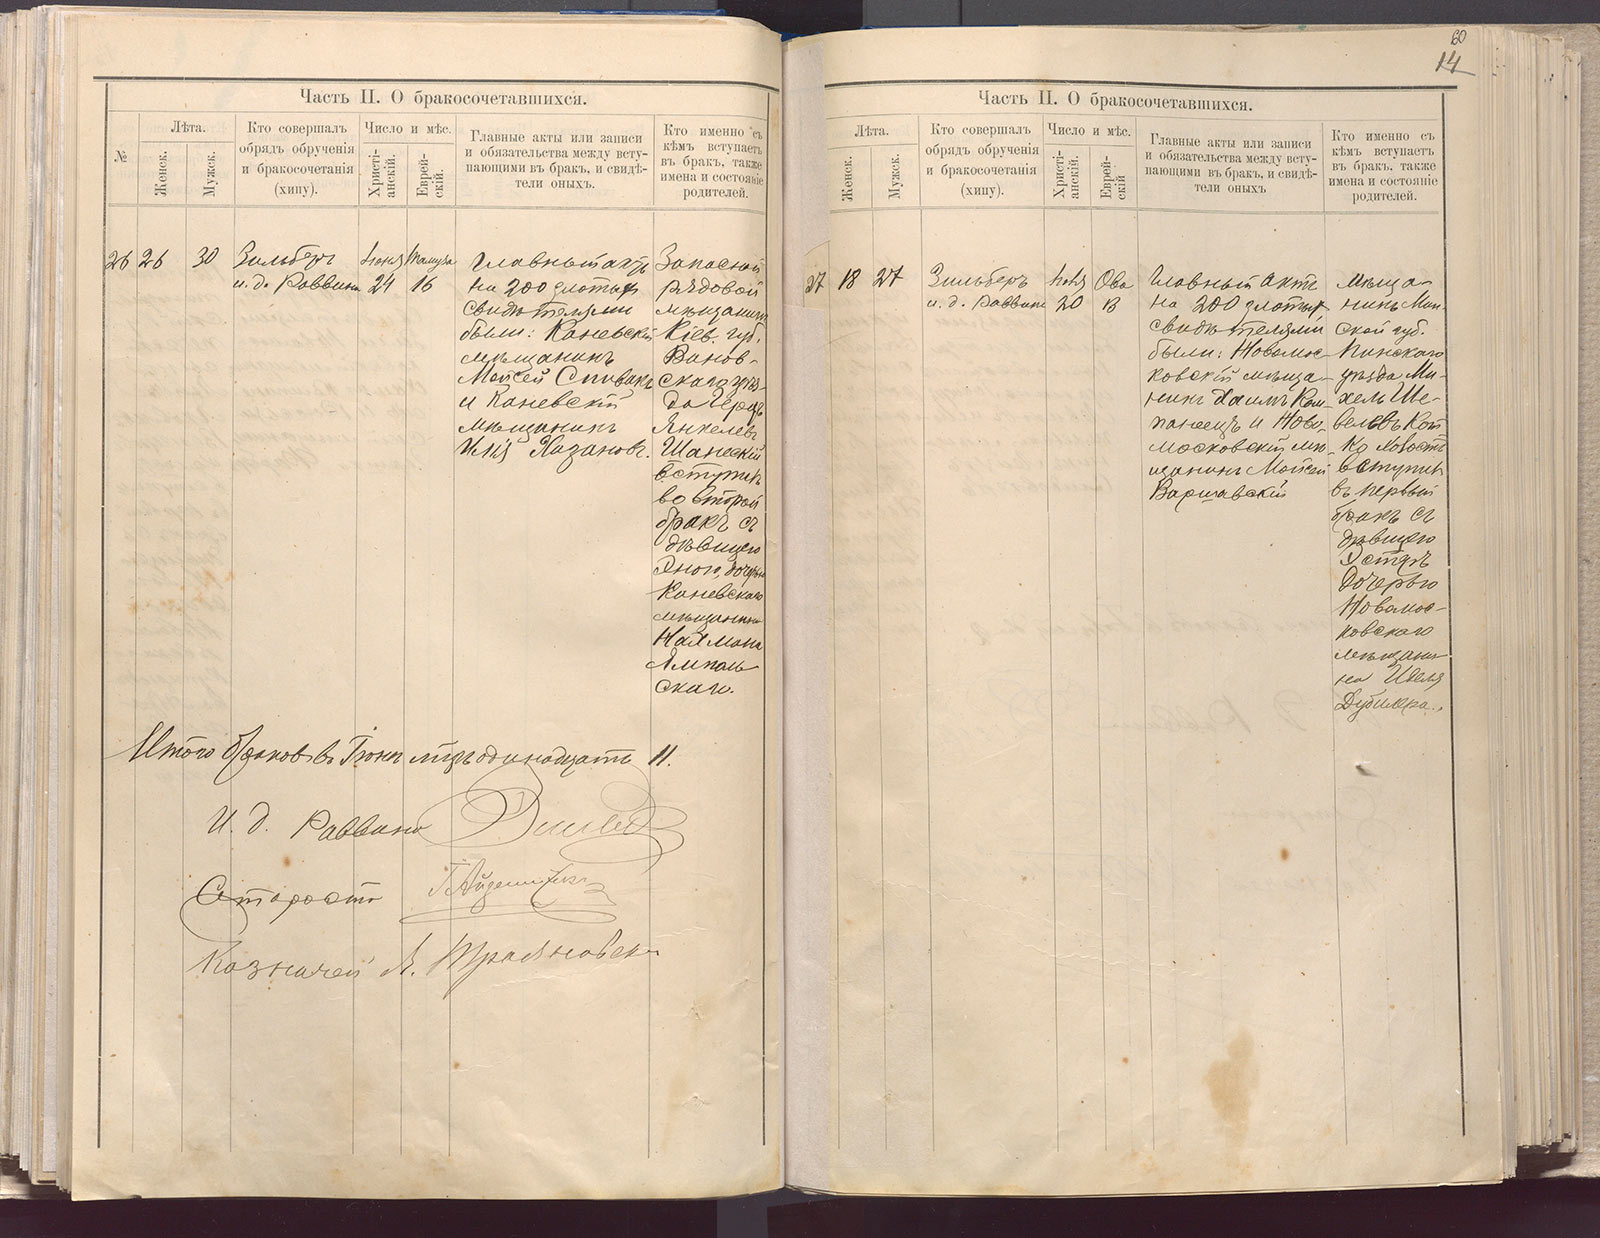 Часть II. О бракосочетавшихся.
№
Лѣта.
Женск.
Мужск.
Кто совершалъ
обрядъ обрученія
и бракосочетанія
(хипу).
Число и мѣс.
Христі-
анскій.
Еврей-
скій.
Главные акты или записи
и обязательства между всту-
пающими въ бракъ, и свидѣ-
тели оныхъ.
Кто именно съ
кѣмъ вступаетъ
въ бракъ, также
имена и состояніе
родителей.
26
26
30
Зильберъ
и. д. Раввина
Іюня
24
Тамуза
16
Главный актъ
на 200 злотых
свидѣтелями
были: Каневскій
мѣщанинъ
Мойсей Спивакъ
и Каневскій
мѣщанинъ
Казановъ.
Запасной
рядовой
мѣщанинъ
Кіев. губ.
скаго уѣз-
да
Янкелевъ
вступилъ
во второй
бракъ съ
дѣвицею
дочерью
Каневскаго
мѣщанина
Ямполь-
скаго.
Итого браковъ въ Іюнѣ мцѣ одинадцать 11.
И. д. Раввина
Староста
Казначей
60
14
Часть II. О бракосочетавшихся.
Лѣта.
Женск.
Мужск.
Кто совершалъ
обрядъ обрученія
и бракосочетанія
(хипу).
Число и мѣс.
Христі-
анскій.
Еврей-
скій
Главные акты или записи
и обязательства между всту-
пающими въ бракъ, и свидѣ-
тели оныхъ
Кто именно съ
кѣмъ вступаетъ
въ бракъ, также
имена и состояніе
родителей.
27
18
27
Зильберъ
и. д. Раввина
20
Ова
13
Главный актъ
на 200 злотых
свидѣтелями
были: Новомос-
ковскій мѣща-
нинъ Хаимъ Ком-
панеецъ и Ново-
московскій мѣ-
щанинъ Мойсей
Варшавскій
Мѣща-
нинъ Мин-
ской губ.
Пинскаго
уѣзда Ми-
хель Ше-
велевъ
холостъ
вступилъ
въ первый
бракъ съ
дѣвицею
дочерью
Новомос-
ковскаго
мѣщани-
на
Дубилера.